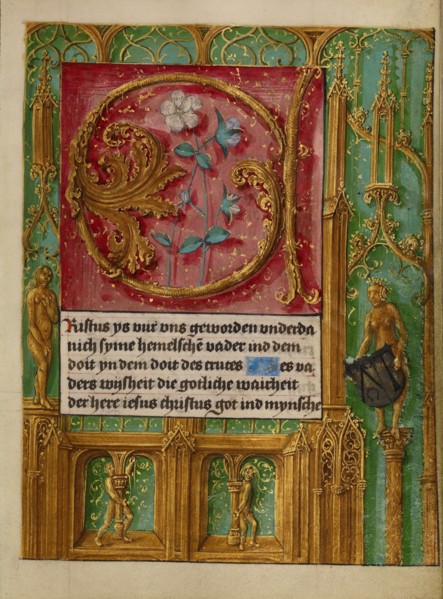 Ristus ys vur vns geworden vnderda
nich syme hemelschē vader ind dem
doit yn dem doit des cruces es va
ders wijsheit die gotliche wairheit
der here iesus christus got ind mynsche